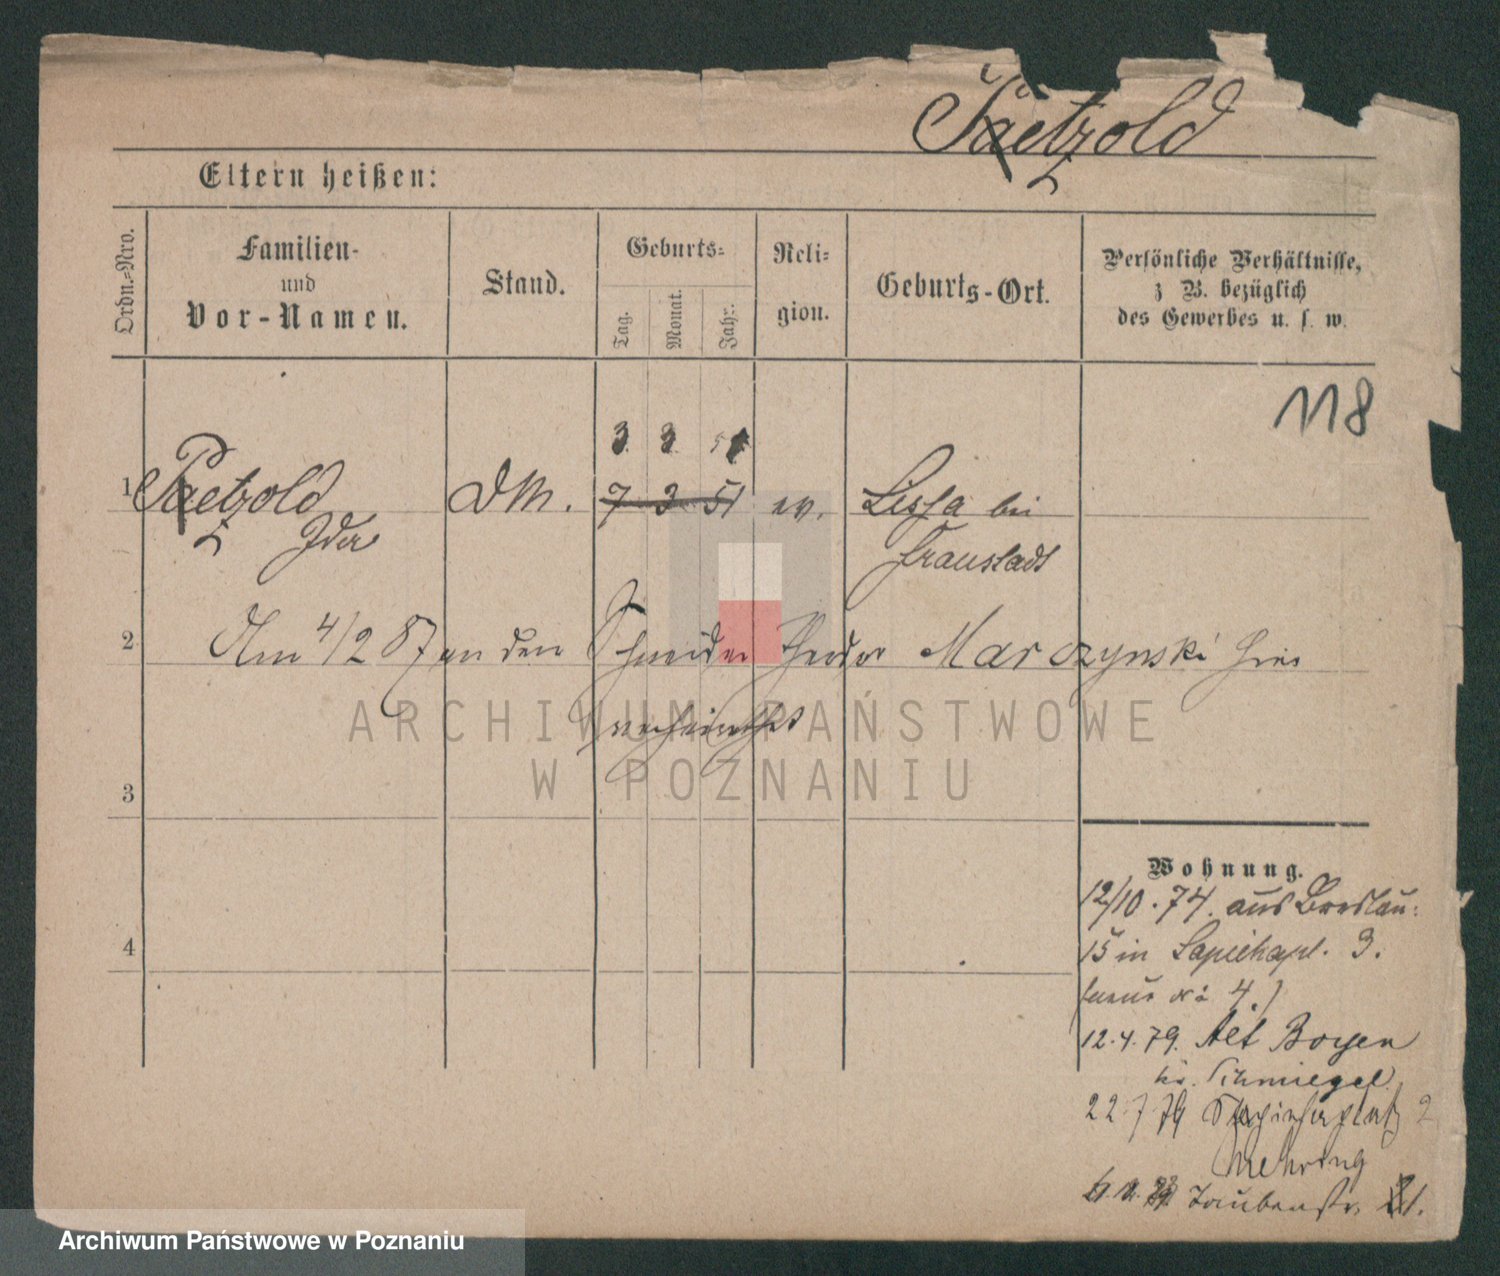 Paetzold
Eltern heißen:
Ordn.-Nro.
Familien-
und
Vor-Namen.
Stand.
Geburts-
Tag.
Monat.
Jahr.
Reli-
gion.
Geburts-Ort.
Persönliche Verhältnisse,
z B. bezüglich
des Gewerbes u. s. w.
118
3. 3. 51
1 Paetzold DM. 7 3 51 ev. Lissa bei
Ida Fraustadt
2 Am 4/2 87 an den Schneider Theodor Marczynski hier
verheirathet
3
4
Wohnung.
12/10. 74. aus Breslau.
15 in Sapiehapl. 3.
4.)
12.4.79. Alt Boyen
Kr. Schmiegel
22 7 79 Sapiehaplatz 2
Mehring
Taubenstr. 1.
ARCHIWUM PAŃSTWOWE
W POZNANIU
Archiwum Państwowe w Poznaniu